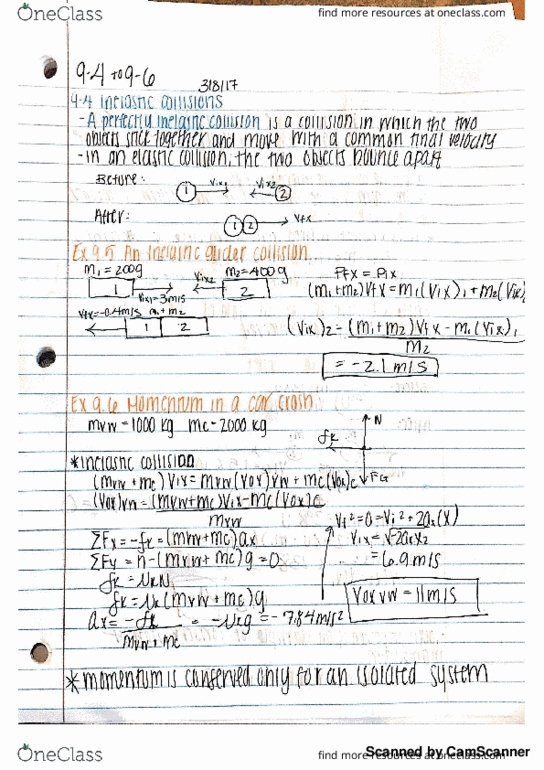 OneClass
find more resources at oneclass.com
9-4 to 9-6
3/8/17
9-4 inelastic collisions
- A perfectly inelastic collision is a collision in which the two
objects stick together and move with a common final velocity
- in an elastic collision, the two objects bounce apart
Before: 1 Vix1 Vix2 2
After: 1 2 Vfx
Ex 9.5 An inelastic glider collision
m1 = 200g Vix2 m2 = 400g
1 2
Vix1 = 3m/s
Vfx = -0.4m/s m1 + m2
1 2
Pfx = Pix
(m1+m2)Vfx = m1(Vix)1 + m2(Vix)
(Vix)2 = (m1+m2)Vfx - m1(Vix)1
m2
= -2.1 m/s
Ex 9.6 Momentum in a car crash
mvw = 1000 kg mc = 2000 kg
N
fk
FG
*inelastic collision
(mvw + mc)Vix = mvw(Vox)vw + mc(Vox)c
(Vox)vw = (mvw+mc)Vix - mc(Vox)c
mvw
ΣFx = -fk = (mvw+mc)ax
ΣFy = n - (mvw + mc)g = 0
fk = μkN
fk = μk(mvw + mc)g
ax = -fk = -μkg = -7.84 m/s2
mvw + mc
Vf2 = 0 = Vi2 + 2ax(x)
Vix = √-2axx2
= 6.9 m/s
Vox vw = 11 m/s
*momentum is conserved only for an isolated system
OneClass
find more resources at oneclass.com
Scanned by CamScanner